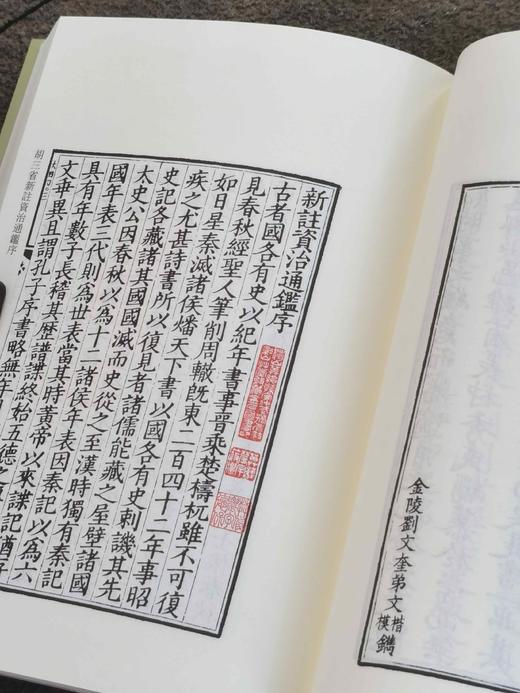 金陵劉文奎弟文楷模鐫
新註資治通鑑序
古者國各有史以紀年書事晉乘楚檮杌雖不可復
見春秋經聖人筆削周轍旣東二百四十二年事昭
如日星秦滅諸侯燔天下書以國各有史刺譏其先
疾之尤甚詩書所以復見者諸儒能藏之屋壁諸國
史記各藏諸其國國滅而史從之至漢時獨有秦記
太史公因春秋以為十二諸侯年表因秦記以為六
國年表三代則為世表當其時黃帝以來諜記猶
具有年數子長稽其歴譜諜終始五德之
文乖異且謂孔子序書略無年
胡三省新註資治通鑑序